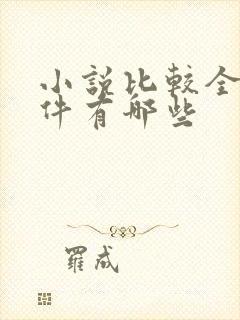 小說比較全
件有哪些
羅成